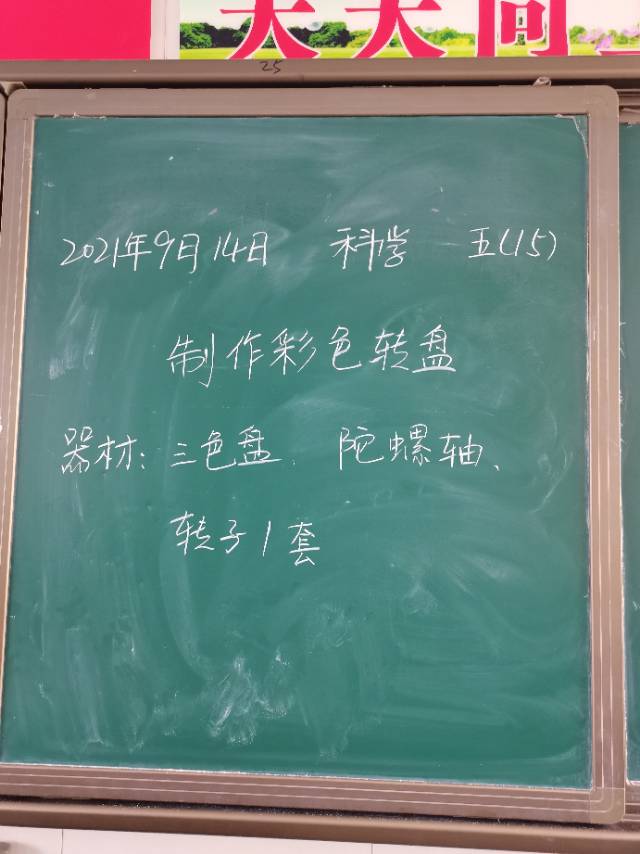 天天向
25
2021年9月14日 科学 五(15)
制作彩色转盘
器材：三色盘、陀螺轴、
转子1套